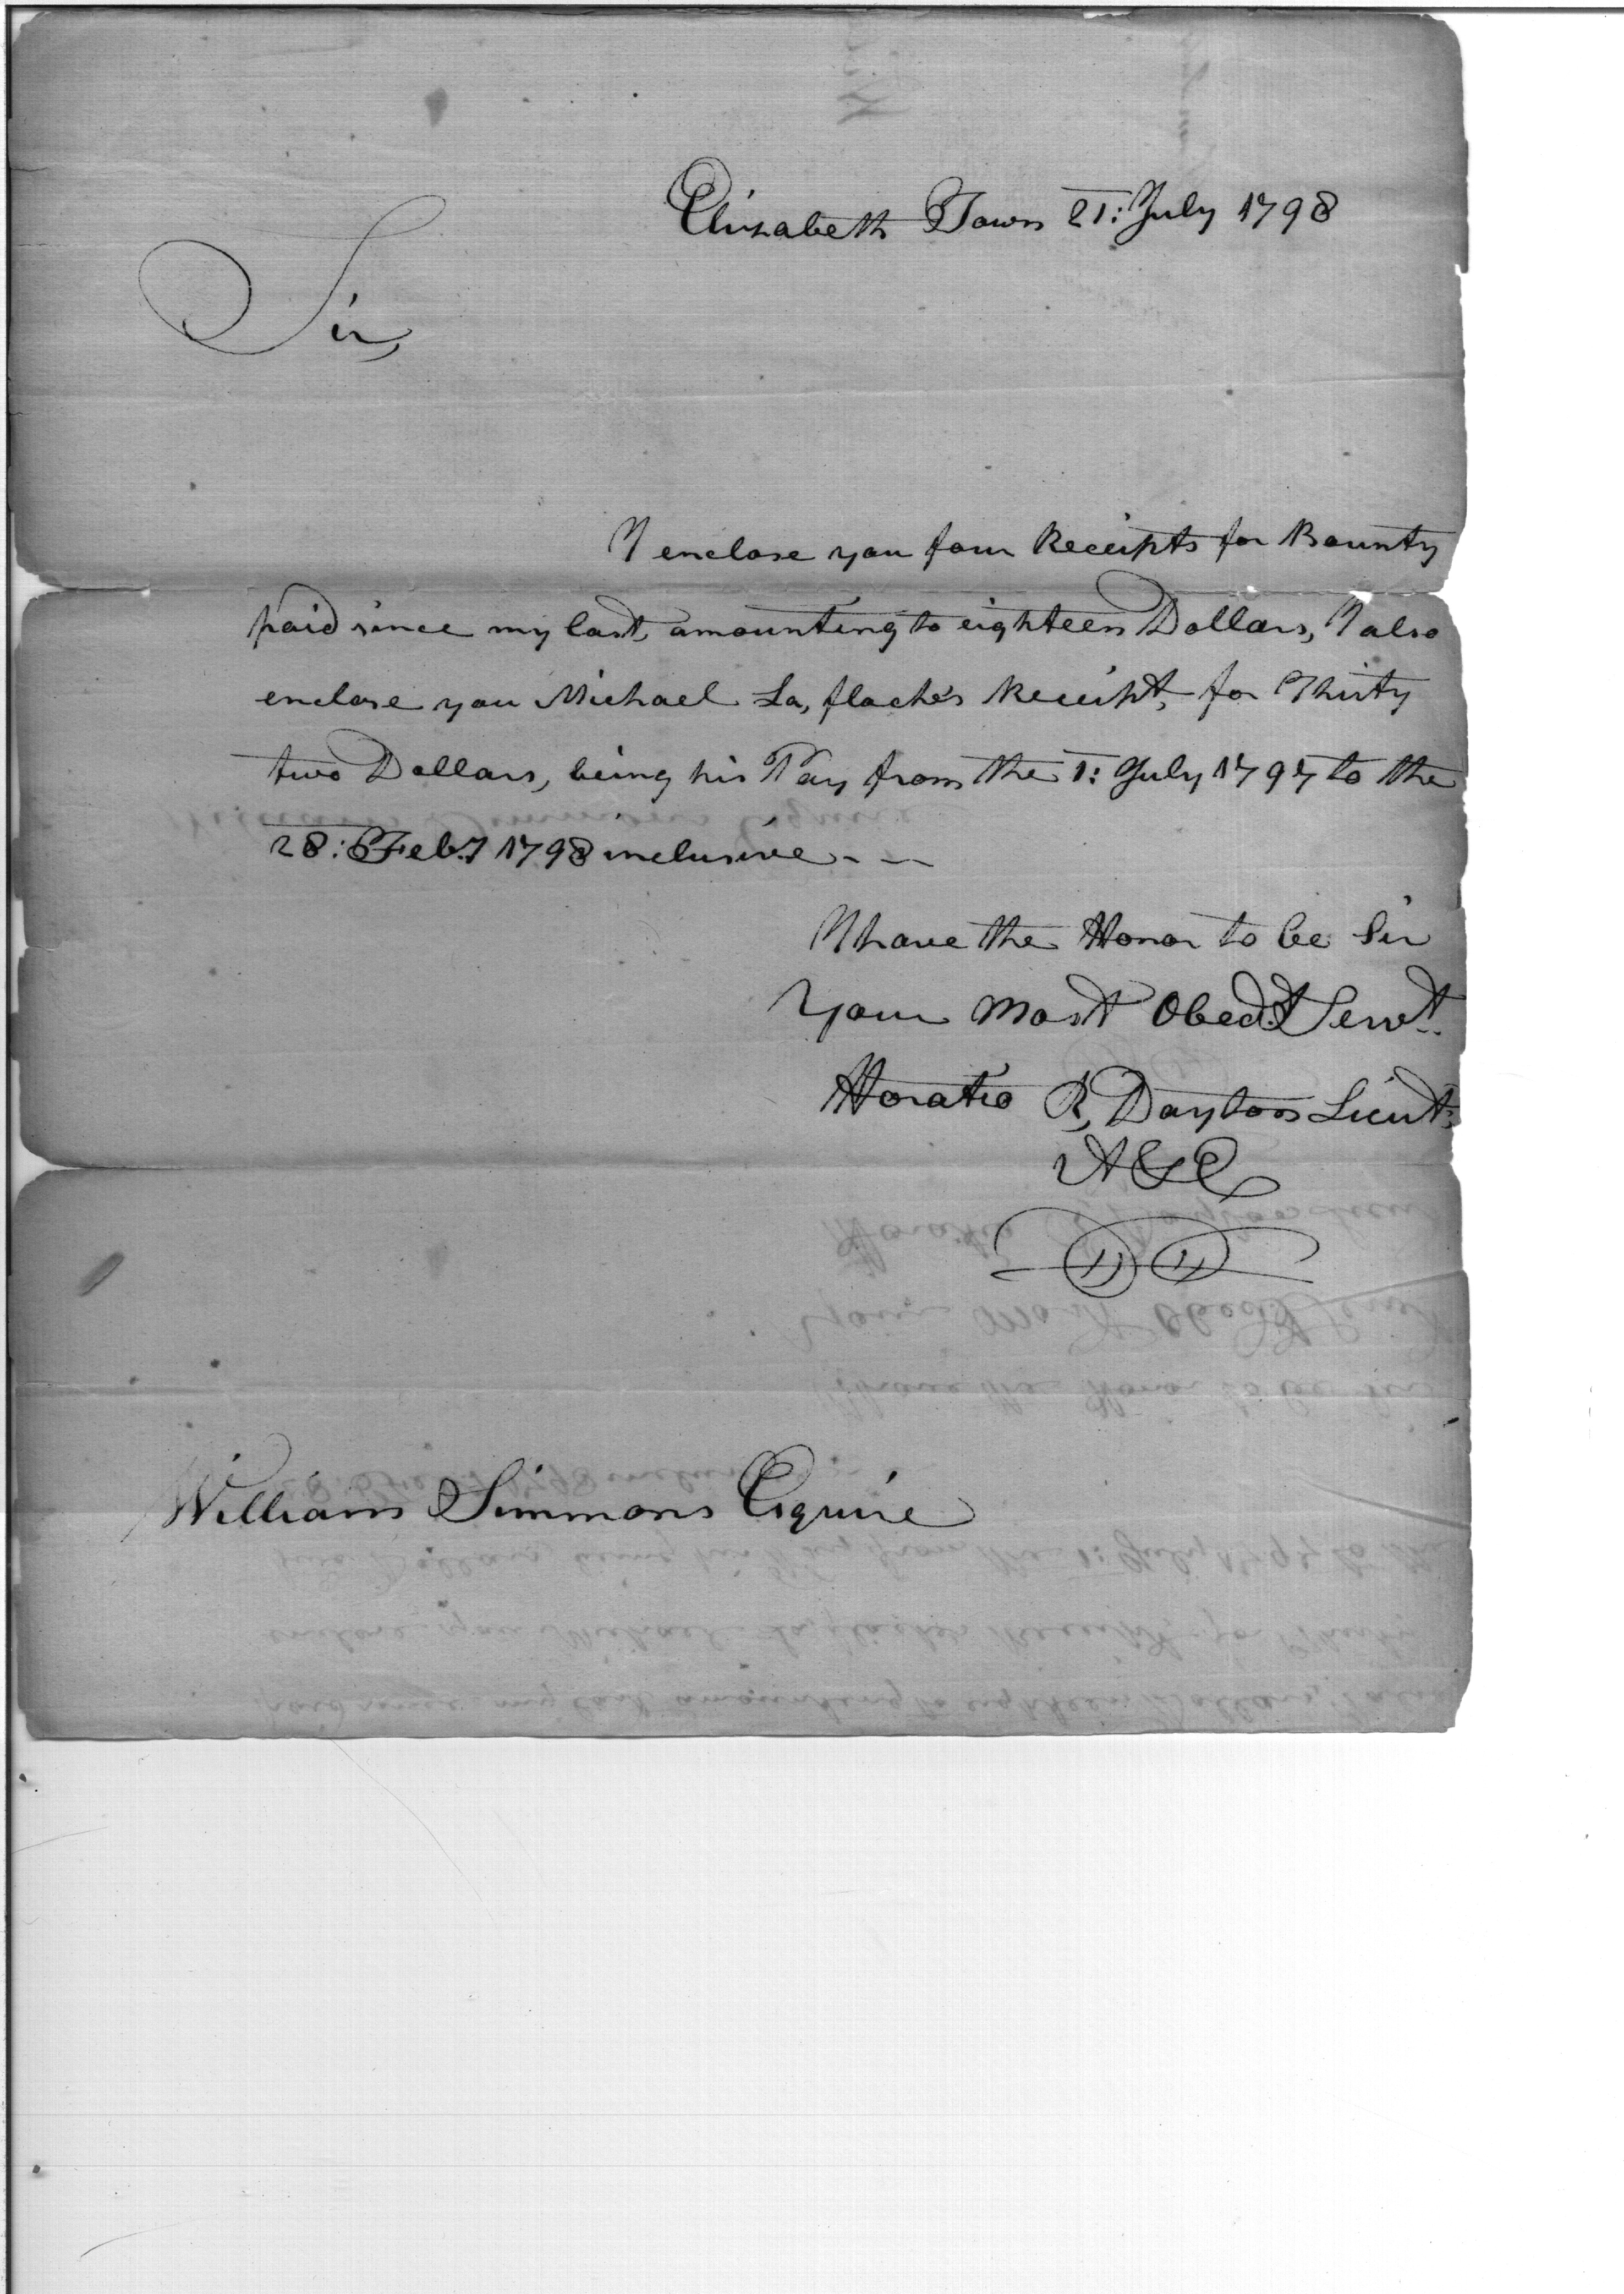 Elizabeth Town 21: July 1798
Sir,
I enclose you four Receipts for Bounty
paid since my last, amounting to eighteen Dollars, I also
enclose you Michael La, flache's Receipt, for Thirty
two Dollars, being his Pay from the 1: July 1797 to the
28: Feb.y 1798 inclusive - - -
I have the Honor to be Sir
Your Most Obed.t Serv.t
Horatio R, Dayton Lieut.
A & E
William Simmons Esquire